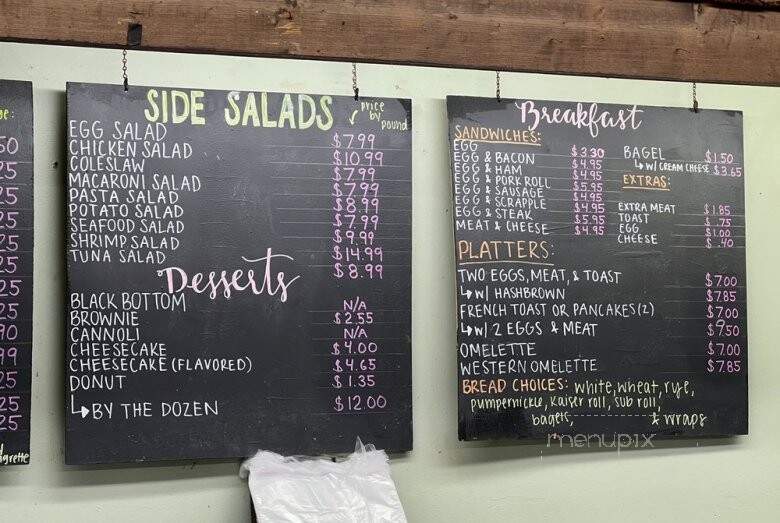 ge:
50
25
25
25
25
25
25
90
99
25
25
25
grette
SIDE SALADS
price
by
pound
EGG SALAD $7.99
CHICKEN SALAD $10.99
COLESLAW $7.99
MACARONI SALAD $7.99
PASTA SALAD $8.99
POTATO SALAD $7.99
SEAFOOD SALAD $9.99
SHRIMP SALAD $14.99
TUNA SALAD $8.99
Desserts
BLACK BOTTOM N/A
BROWNIE $2.55
CANNOLI N/A
CHEESECAKE $4.00
CHEESECAKE (FLAVORED) $4.65
DONUT $1.35
↳BY THE DOZEN $12.00
Breakfast
SANDWICHES:
EGG $3.30
EGG & BACON $4.95
EGG & HAM $4.95
EGG & PORK ROLL $5.95
EGG & SAUSAGE $4.95
EGG & SCRAPPLE $4.95
EGG & STEAK $5.95
MEAT & CHEESE $4.95
BAGEL $1.50
↳W/ CREAM CHEESE $3.65
EXTRAS:
EXTRA MEAT $1.85
TOAST $.75
EGG $1.00
CHEESE $.40
PLATTERS:
TWO EGGS, MEAT, & TOAST $7.00
↳W/ HASHBROWN $7.85
FRENCH TOAST OR PANCAKES (2) $7.00
↳W/ 2 EGGS & MEAT $9.50
OMELETTE $7.00
WESTERN OMELETTE $7.85
BREAD CHOICES: white, wheat, rye,
pumpernickle, kaiser roll, sub roll,
bagels, & wraps
menupix